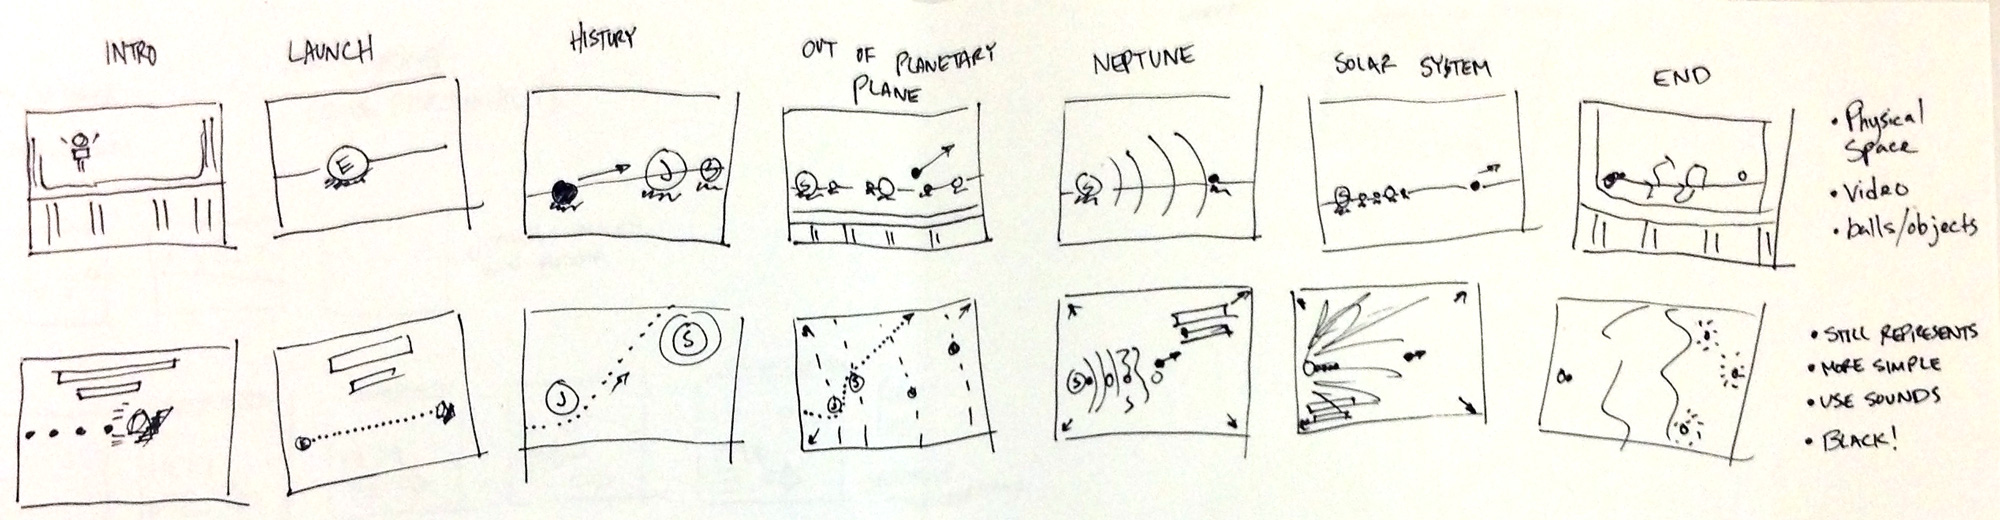 INTRO
LAUNCH
HISTORY
OUT OF PLANETARY
PLANE
NEPTUNE
SOLAR SYSTEM
END
E
J
S
S
S
S
• Physical
Space
• Video
• balls/objects
E
J
S
J
S
S
• STILL REPRESENTS
• MORE SIMPLE
• USE SOUNDS
• BLACK!